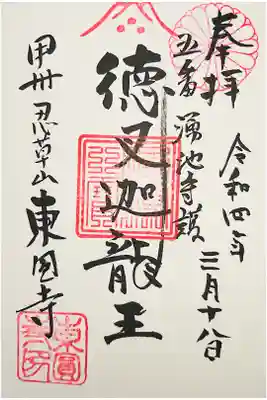 奉拝
令和四年
三月十八日
五番 湧池守護
徳叉迦龍王
甲州忍草山東円寺